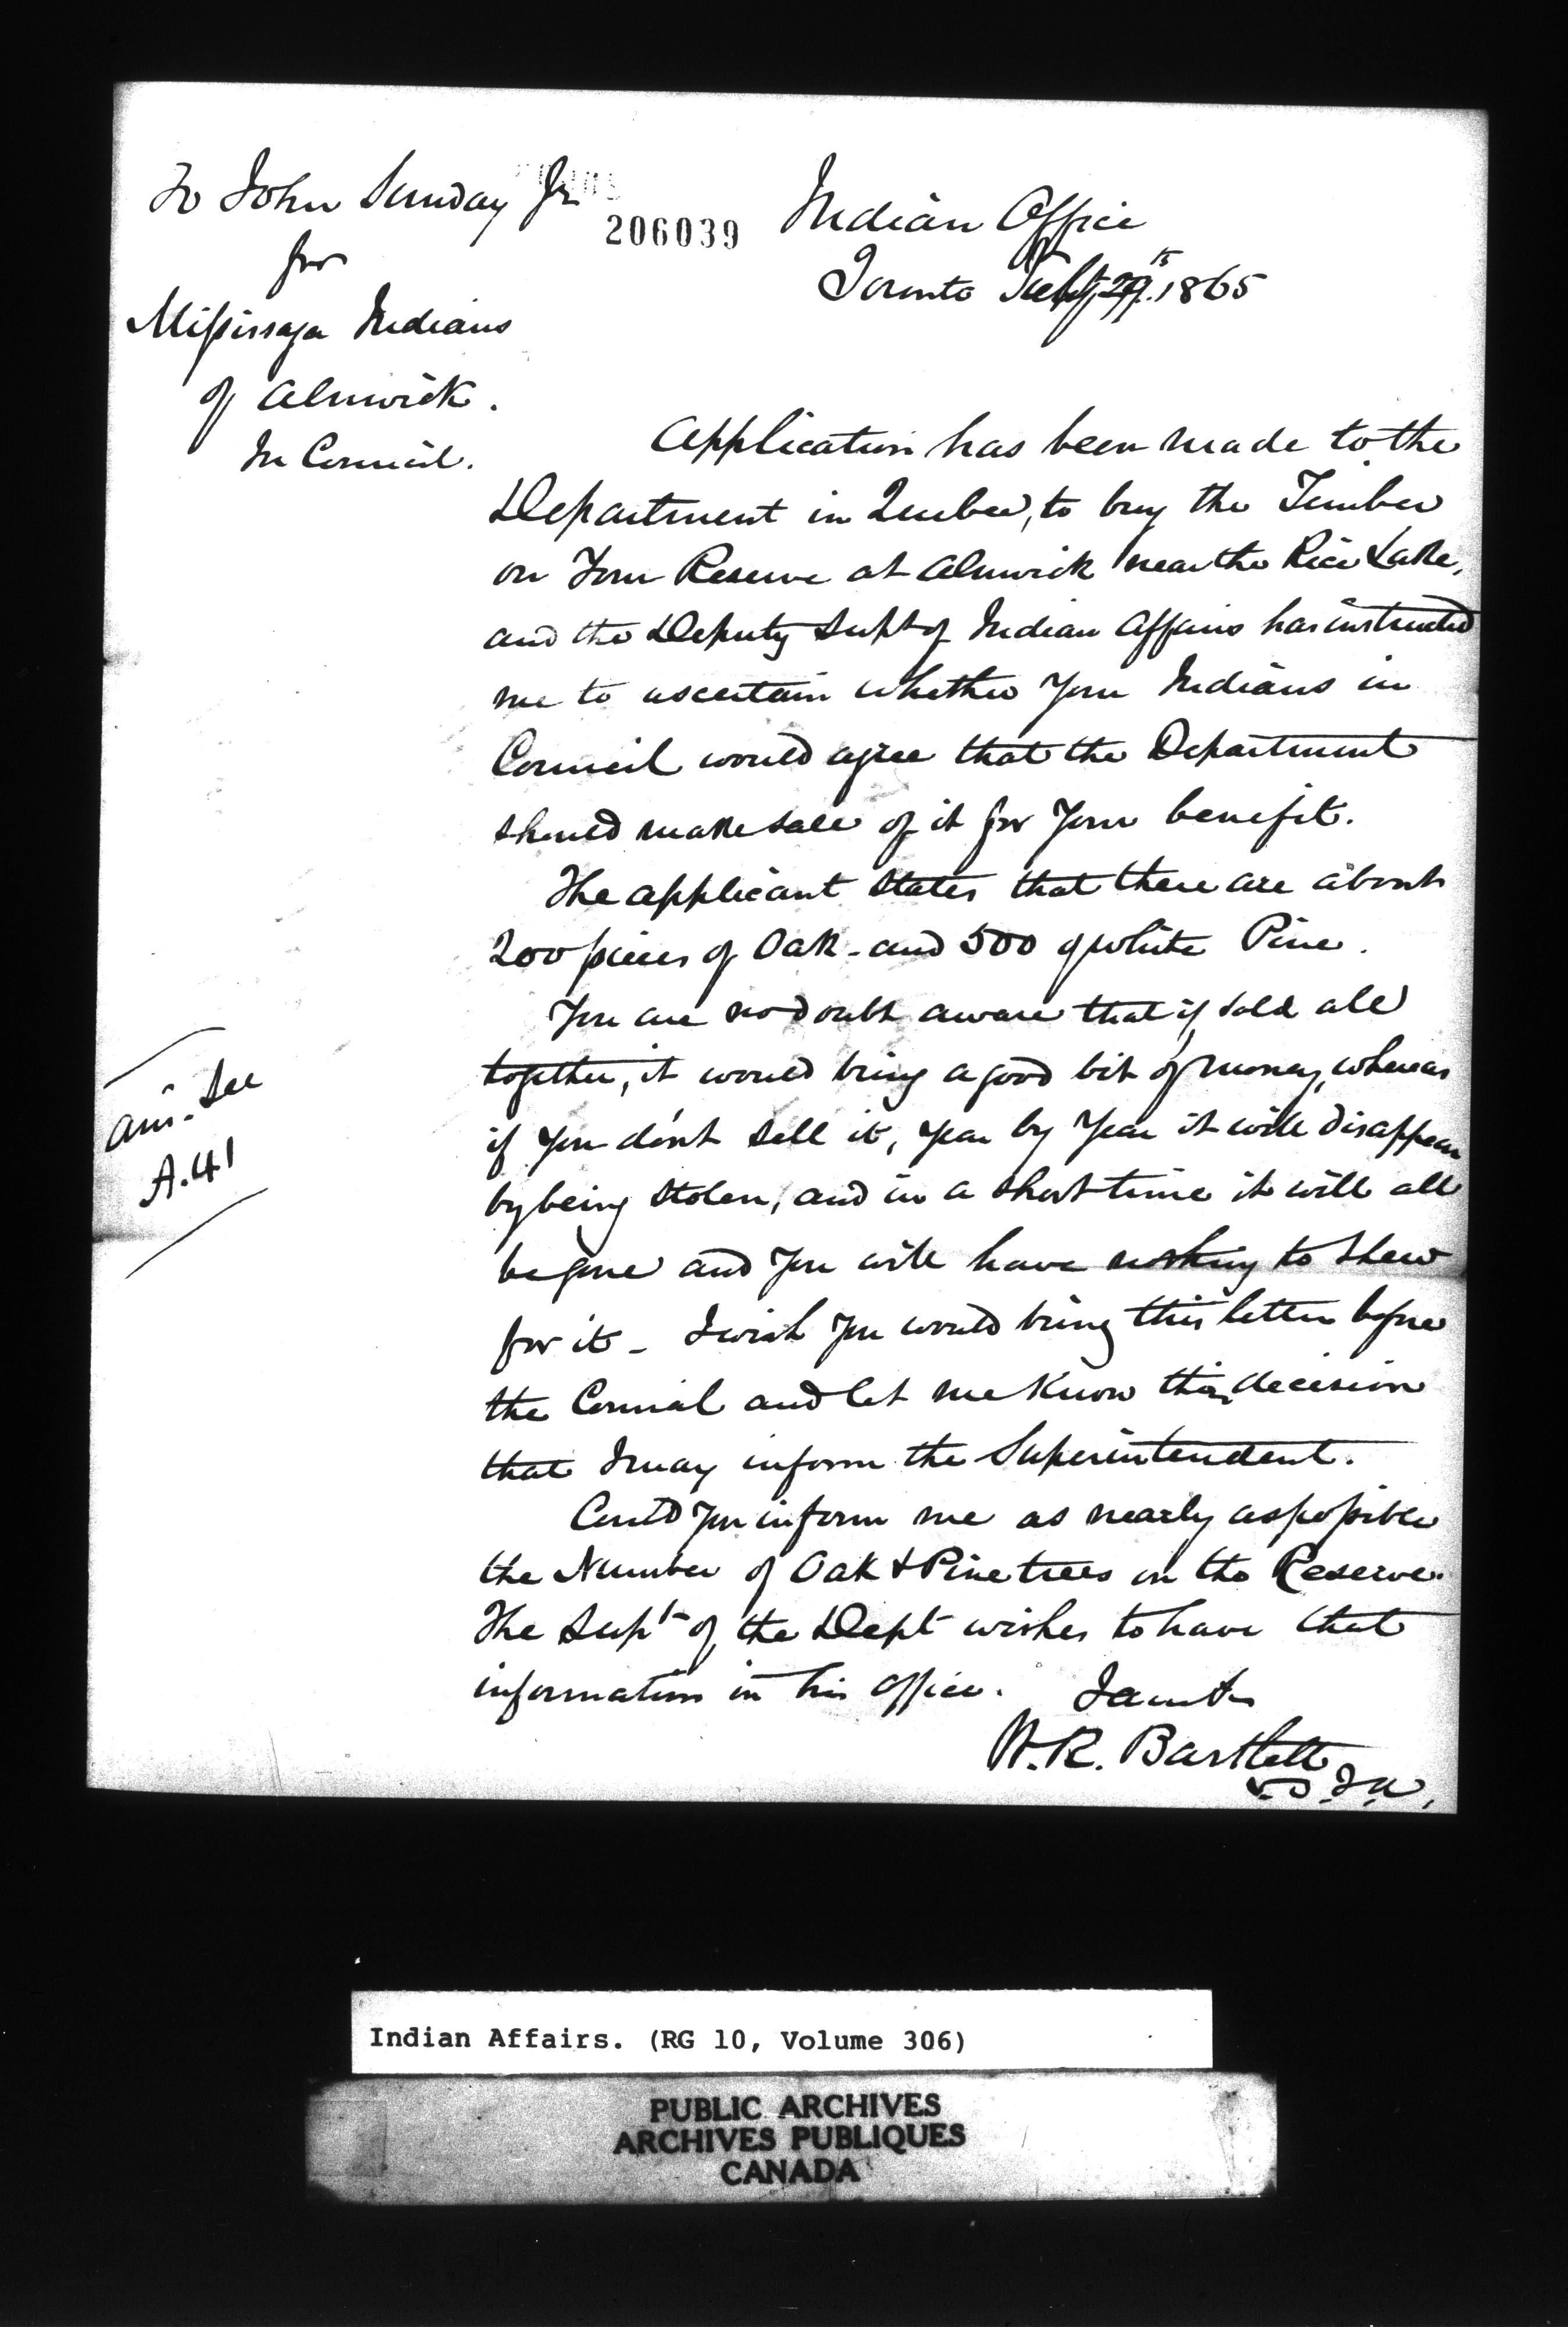 To John Sunday Jr
for
Missisaga Indians
of Alnwick.
In Council.
206039
Indian Office
Toronto 1865
Application has been made to the
Department in Quebec, to buy the Timber
on Your Reserve at Alnwick near the Rice Lake,
and the Deputy Supt of Indian Affairs has instructed
me to ascertain whether Your Indians in
Council would agree that the Department
should make sale of it for Your benefit.
The applicant states that there are about
200 pieces of Oak - and 500 of White Pine.
You are no doubt aware that if sold all
together, it would bring a good bit of money, whereas
if you don't sell it, year by Year it will disappear
by being stolen, and in a short time it will all
be gone and You will have nothing to shew
for it - I wish You would bring this letter before
the Council and let me know their decision
that I may inform the Superintendent.
Could You inform me as nearly as possible
the Number of Oak & Pine trees on the Reserve.
The Supt of the Dept wishes to have that
information in his office. I am &c
W.R. Bartlett
V.S.I.A.
Ans. See
A.41
Indian Affairs. (RG 10, Volume 306)
PUBLIC ARCHIVES
ARCHIVES PUBLIQUES
CANADA